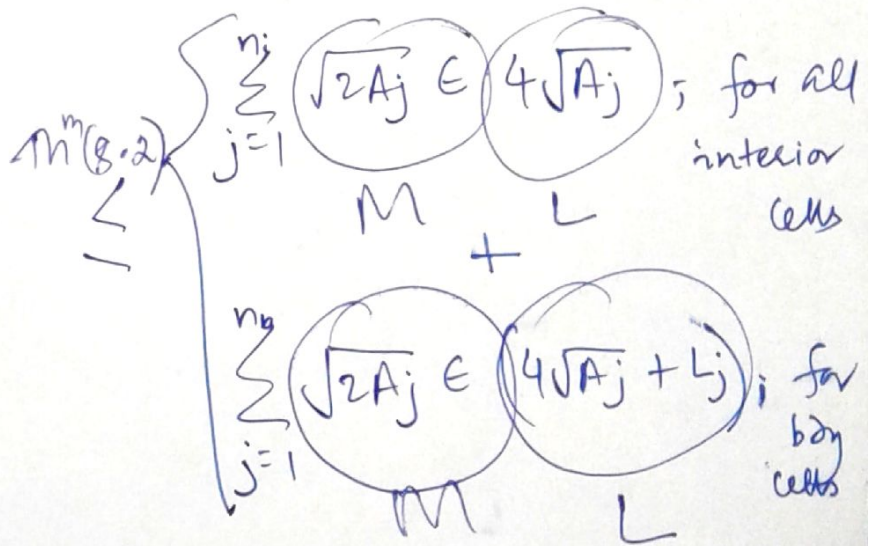 n^m(8.2) ≤ { Σ_{j=1}^{n_i} √2Aj ∈ 4√Aj ; for all
interior
cells
M L
+
Σ_{j=1}^{n_b} √2Aj ∈ (4√Aj + Lj) ; for
bdy
cells
M L